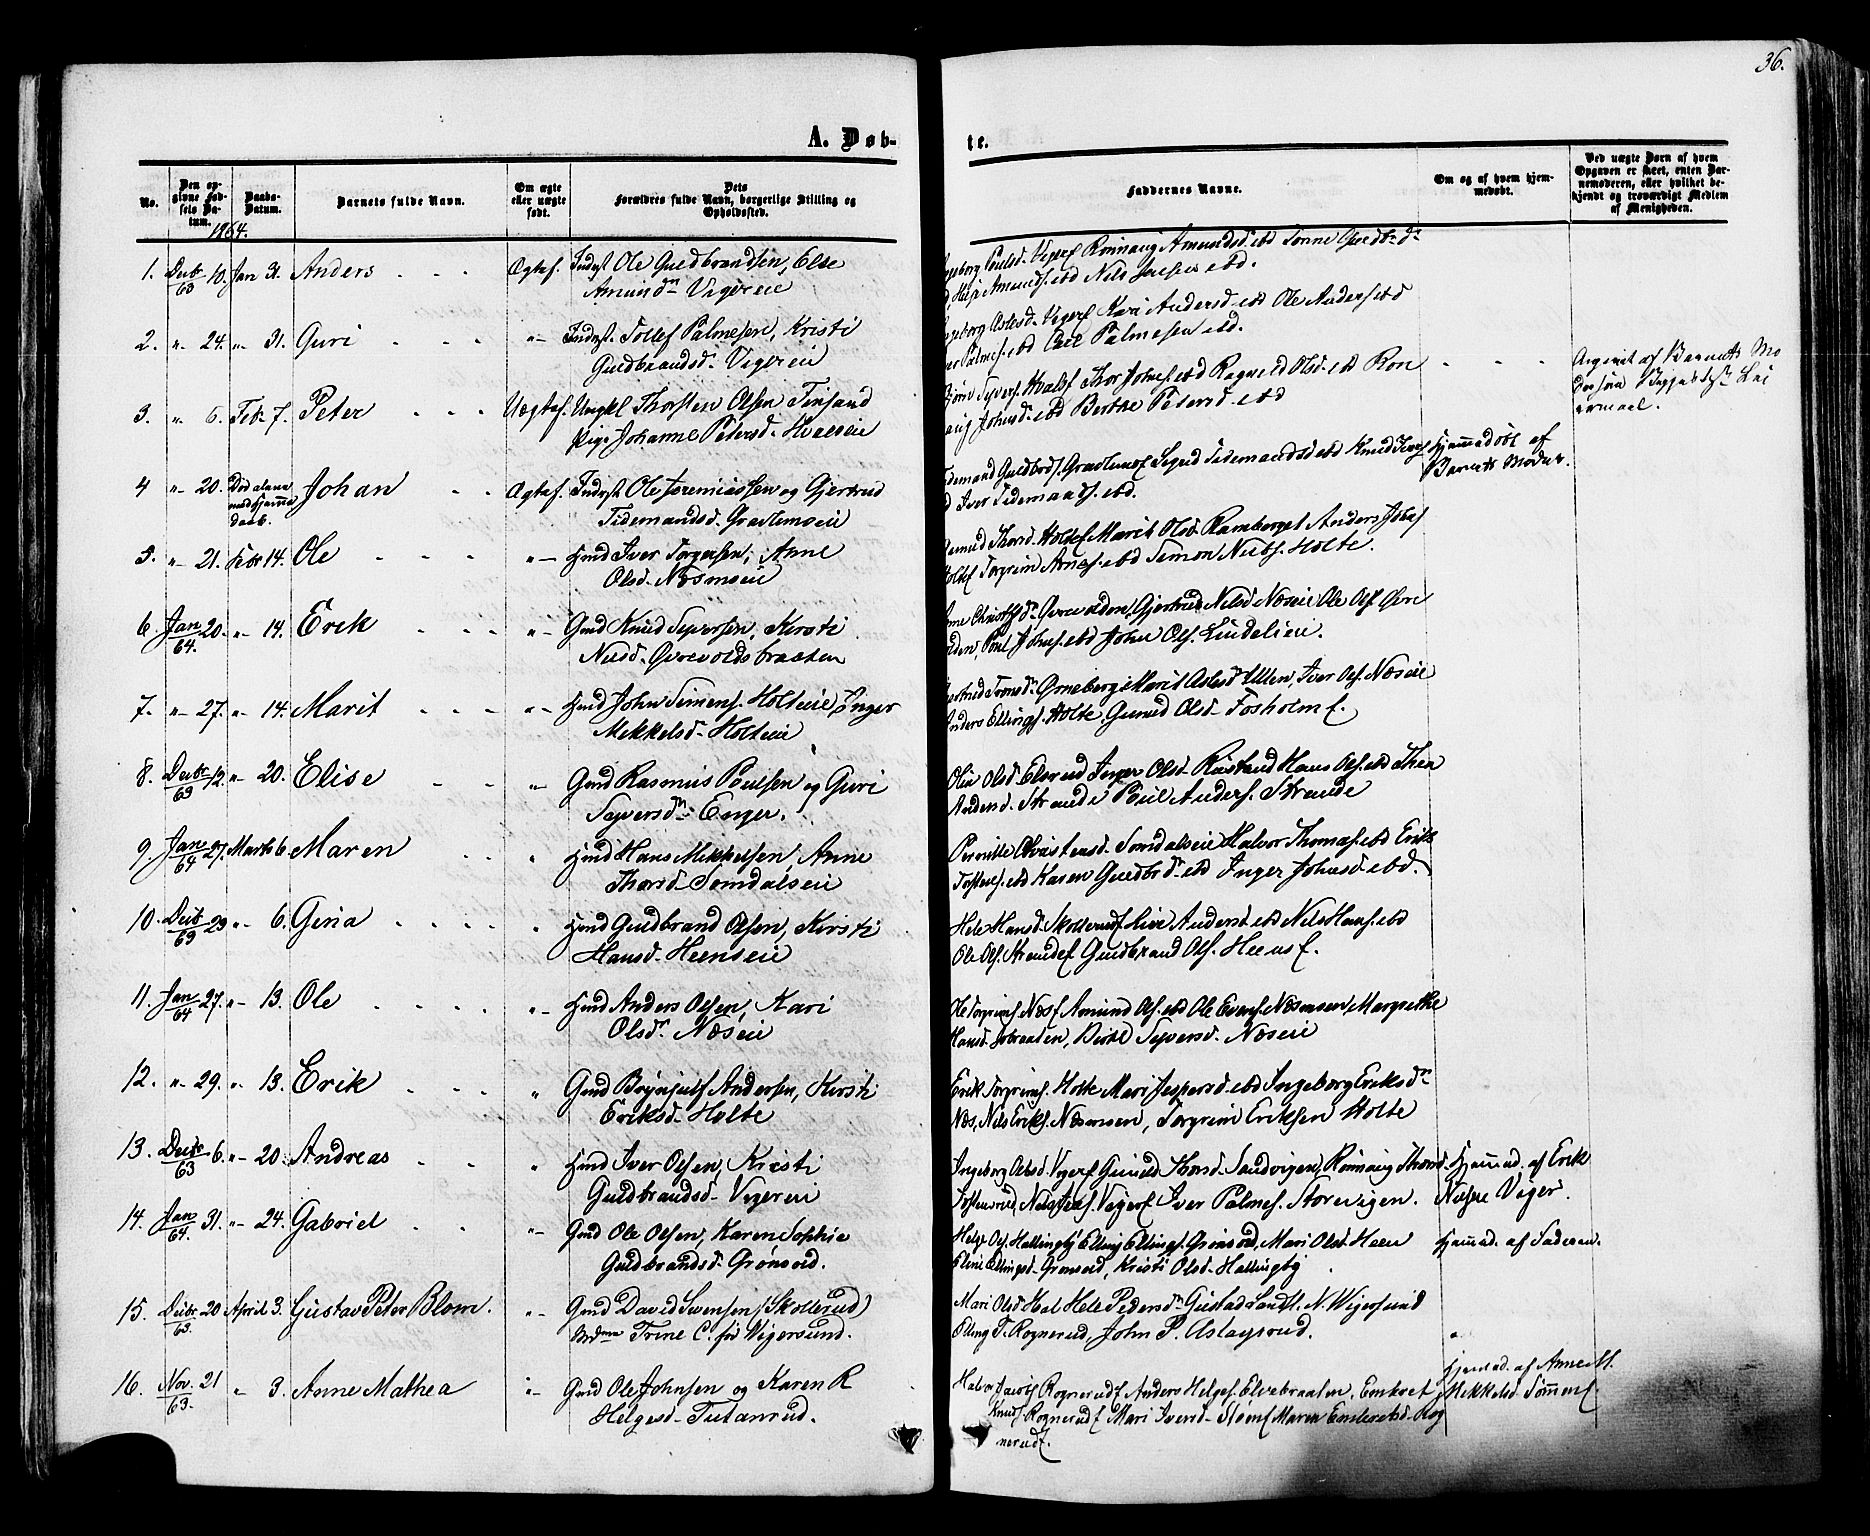 36.
A. Døb-
te.
No.
Den op-
givne Fød-
sels Da-
tum.
Daabs-
Datum.
Barnets fulde Navn.
Om ægte
eller uægte
født.
Dets
Forældres fulde Navn, borgerlige Stilling og
Opholdssted.
Faddernes Navne.
Om og af hvem hjem-
medøbt.
Ved uægte Børn af hvem
Opgaven er skeet, enten Bar-
nemoderen, eller hvilket be-
kjendt og troværdigt Medlem
af Menigheden.
1864.
1. Decbr 63 10. Jan 31. Anders Ægtef. Indst Ole Guldbrandsen, Else
Amundsdn Vegerеie
Ingeborg Poulsd. Vegersf Rønnaug Amundsd. ibd Tonne Guldbrd
Helge Amunds. ibd Nils Ibsen ibd.
2. " 24. " 31. Guri " Indst. Tollef Palmesen, Kristi
Guldbrandsd. Vegereie
Ingeborg Aslesd. Vegersf Kari Andersd ibd Ole Anders. ibd
Palmes. ibd Carl Palmesen ibd.
3. " 6. Feb. 7. Peter Uægtef. Ungkl Thorsten Olsen Finsand
Pige Johanne Pedersd. Hvalseie
Syvers. Hvalsf Thor Johns. ibd Ragnild Olsd. ibd Røn
aug Johnsd. ibd Berthe Pedersd. ibd
Angivet af Barnets Mo
4 " 20. Død alene
med Hjemme
daab. Johan Ægtef. Indst. Ole Jeremiassen og Gjertrud
Tidemandsd. Græslemseie
Tidemand Guldbrds. Græslemsf Sigrid Tidemandsd ibd Knud Ivers
Iver Tidemands. ibd.
Hjemmedøbt af
Barnets Moder.
5. " 21. Febr 14. Ole " Hmd Iver Torgersen, Anne
Olsd. Næsmoeie
Gunild Thorsd. Holtef Marit Olsd. Ramberget Anders Johns
Holtef Torgrim Arnes. ibd Simon Nubs. Holte.
6. Jan 64. 20. " 14. Erik " Gmd Knud Syversen, Kirsti
Nilsd. Øvrevoldsbraaten
Anne Christophsdr Øvrevolden, Gjertrud Nilsd Næseie Ole Ols. Øvre
volden, Poul Johns. ibd John Ols. Lindelieie.
7. " 27. " 14. Marit " Hmd John Simens. Holteeie Inger
Mekkelsd. Holteeie
Gjertrud Tronsdr Ørneberg Marit Aslesd Ullen, Iver Ols. Næseie
Anders Ellings. Holte Gunild Olsd. Fosholmf.
8. Decbr 63 12. " 20. Elise " Gmd Rasmus Poulsen og Guri
Syversdn Enger.
Olia Olsd. Elsrud Inger Olsd. Rustand Hans Ols. ibd Thea
Andersd. Strande Poul Anders. Strande
9. Jan 64 27. Marts 6. Maren " Hmd Hans Mekkelsen, Anne
Thorsd. Somdalseie
Pernille Christensd. Somdalseie Halvor Thomas. ibd Erik
Torstens. ibd Karen Guldbrd. ibd Inger Johnsd. ibd.
10. Decbr 63 29 " 6. Gina " Hmd Guldbrand Olsen, Kirsti
Hansd. Heenseie
Hele Hansd. Skollerudf Live Andersd. ibd Nils Hans. ibd
Ole Ols. Strandef Guldbrand Ols. Heensf.
11. Jan 64 27. " 13. Ole " Hmd Anders Olsen, Kari
Olsdr Næseie
Ole Torgrims. Næsf Amund Ols. ibd Ole Evens. Næsmoen, Margrethe
Hansd. braaten, Birthe Syversd. Næseie
12. " 29. " 13. Erik " Gmd Brynjulf Andersen, Kirsti
Eriksd. Holte
Erik Torgrims. Holte Mari Jespersd. ibd Ingeborg Eriksdn
Næs, Nils Eriks. Næsmoen, Torgrim Eriksen Holte
13. Decbr 63 6. " 20. Andreas " Hmd Iver Olsen, Kristi
Guldbrandsd. Vegereie
Ingeborg Olsd. Vegersf Gunild Thorsd. Sandvigen, Rønnaug Thorsd.
Vegersf Iver Palmes. Storevigen.
Hjemmed. af Erik
Veger.
14. Jan 64. 31. " 24. Gabriel " Gmd Ole Olsen, Karen Sophie
Guldbrandsd. Grønvold.
Helge Ols. Hallingby Elling Ellings. Grønvold, Mari Olsd. Heen
Eline Ellingsd. Grønvold, Kristi Olsd. Hallingby
Hjemmed. af Faderen.
15. Decbr 63. 20 April 3. Gustav Peter Blom. " Gmd David Svensen (Skollerud)
Mdme Trine C. fr Vigersund.
Mari Olsd Hval Hele Pedersdn Gustad Landh. N. Vigersund
Elling T. Rognerud, John P. Aslagsrud.
16. Nov. 63. 21 " 3. Anne Mathea " Gmd Ole Johnsen og Karen R
Helgesd. Tutanrud.
Halvor Jacobs Rognerudf Anders Helges. Elvebraaten, Embret
Knuds. Rognerudf Mari Iversd. Stømf Maren Embretsd. Rog
nerudf.
Hjemmed. af Anne M.
Mekkelsd. Tømmerf.